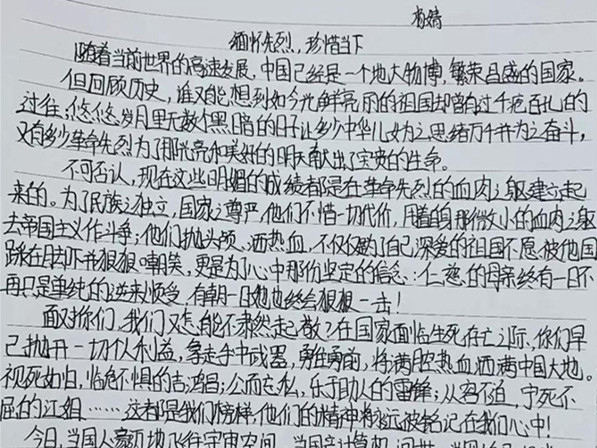 肖婧
缅怀先烈，珍惜当下
随着当前世界的高速发展，中国已经是一个地大物博，繁荣昌盛的国家。
但回顾历史，谁又能想到如今光鲜亮丽的祖国却暗自过千疮百孔的
过往；悠悠岁月里无数个黑暗的日子让多少中华儿女为之思绪万千并为之奋斗，
又有多少革命先烈为了那光亮和美好的明天献出了宝贵的生命。
不可否认，现在这些明媚的成绩都是在革命先烈的血肉之躯建立起
来的。为了民族之独立，国家之尊严他们不惜一切代价，用着自身那微小的血肉之躯
去帝国主义作斗争；他们抛头颅、洒热血，不仅仅为了自己深爱的祖国不愿被他国
踩在脚下并狠狠嘲笑，更是为了心中那份坚定的信念：仁慈的母亲终有一日不
再只是单纯的逆来顺受，有朝一日她也终给狠狠一击！
面对你们，我们又怎能不肃然起敬？在国家面临生死存亡之际，你们早
已抛开一切个人利益，拿走手中武器，勇往勇前，将满腔热血洒满中国大地。
视死如归，临危不惧的 ；公而忘私，乐于助人的雷锋；从容不迫，宁死不
屈的江姐……这都是我们榜样，他们的精神将永远被铭记在我们心中！
今日，当国人豪 地飞往宇宙空间，当国产计算机